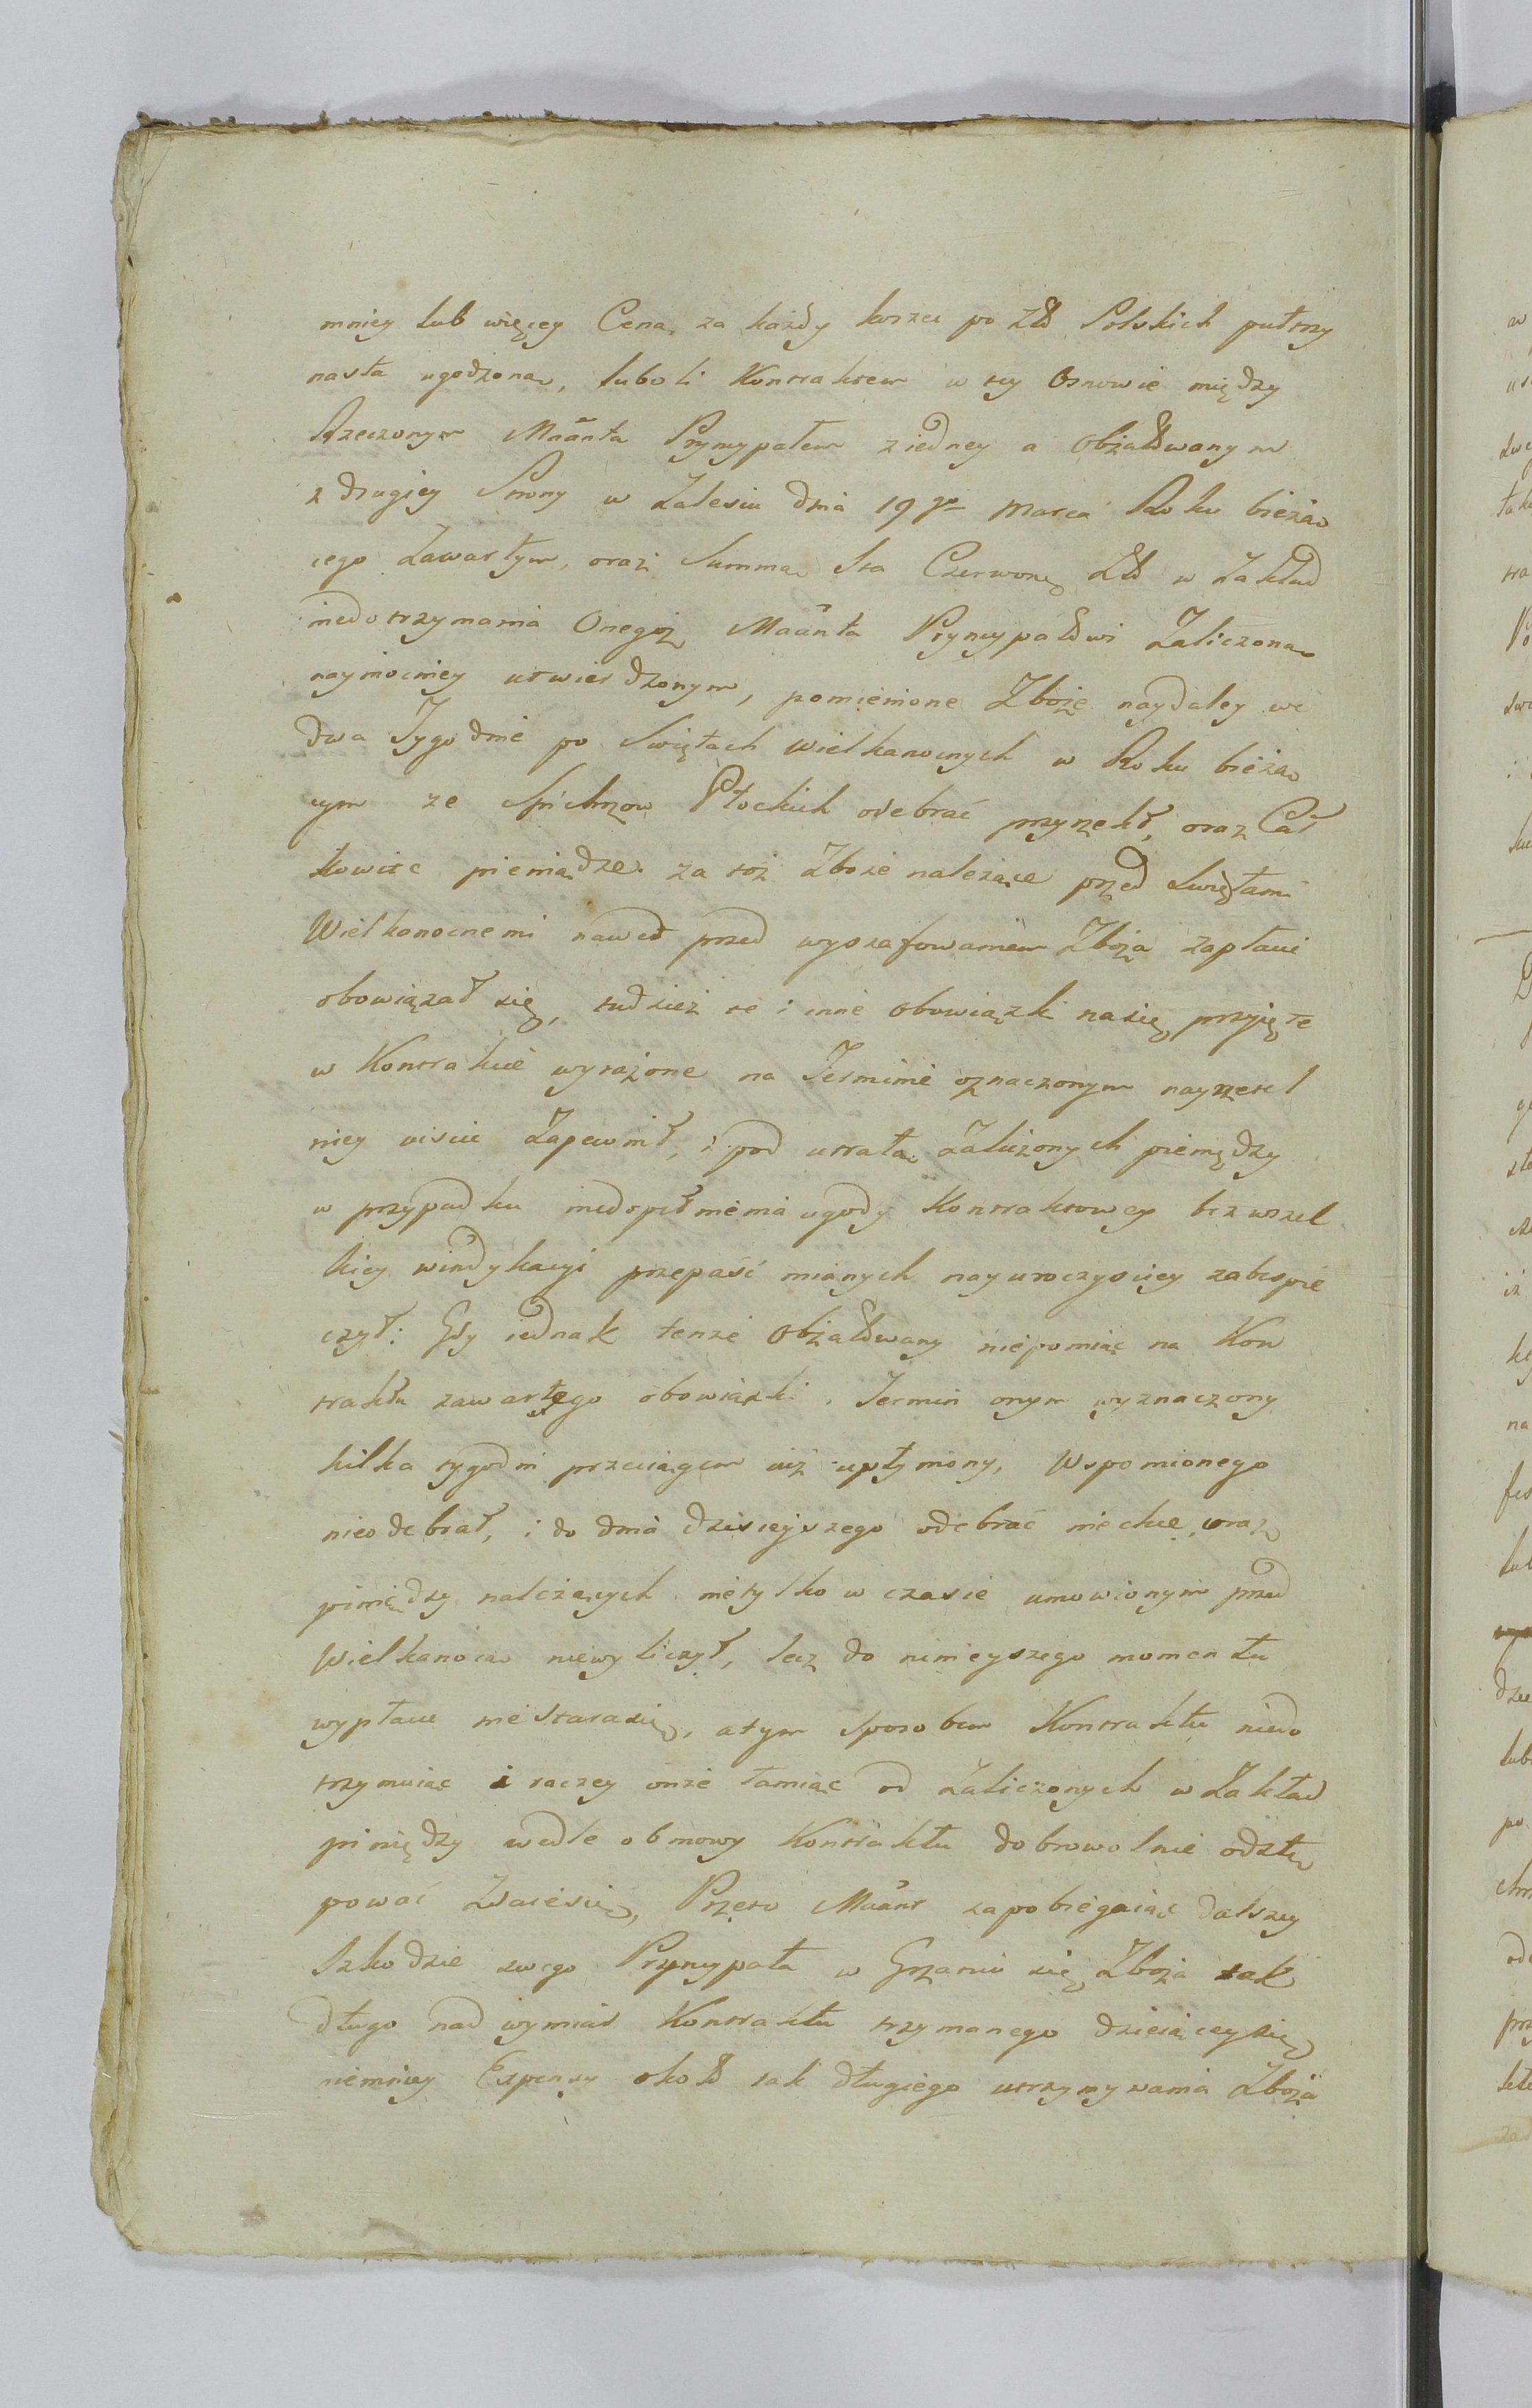 mniey lub więcey Cena za każdy korzec po Zł Polskich pułtrzy
nasta ugodzona, luboli Kontraktem w tey Osnowie między
Rzeczonym Maanta Pryncypałem ziedney a Obżałłwanym
z drugiey Strony w Zalesiu dnia 19go Marca Roku bieżą
cego Zawartym, oraz Summą Sta Czerwonę Zł w Zakład
niedotrzymania Onegoż Maanta Pryncypałowi Zaliczoną
naymocniey utwierdzonym, pomienione Zboże naydaley we
dwa Tygodnie po Swiętach Wielkanocnych w Roku bieżą
cym ze Spichrzow Płockich odebrać przyrzekł, oraz Cał
kowite pieniądze za toż Zboże należące przed Swiętami
Wielkonocnemi nawet przed wyszafowaniem Zboża zapłacic
obowiązał się, tudzież te i inne obowiązki nasię przyięte
w Kontrakcie wyrażone na Terminie oznaczonym nayrzetel
niey uiscic Zapewnił, i pod utratą Zaliczonych pieniędzy
w przypadku niedopełnienia ugody Kontraktowey bez wszel
kiey windykacyi przepaść mianych nayuroczysciey zabespie
czył: Gdy iednak tenże Obżałowany niepomiąc na Kon
traktu zawartego obowiązki, Termin onym wyznaczony
kilka tygodni przeciągem iuż upłyniony, Wspomionego
nieodebrał, i do dnia dzisieyszego odebrać niechce, oraz
pieniędzy należących nietylko w czasie umowionym przed
Wielkanocą niewyliczył, lecz do ninieyszego momentu
wypłacic nie Starasię, atym Sposobem Kontraktu niedo
trzymuiąc i raczey onże łamiąc od Zaliczonych w Zakład
piniędzy wedle obmowy Kontraktu dobrowolnie odstę
pować Zdaiesię, Przeto Maant zapobiegaiąc dalszey
Szkodzie swego Pryncypała w Grzaniu się Zboża tak
długo nad wymiar Kontraktu trzymanego dzieiącey się
niemniey Expensy około tak długiego utrzymywania Zboża